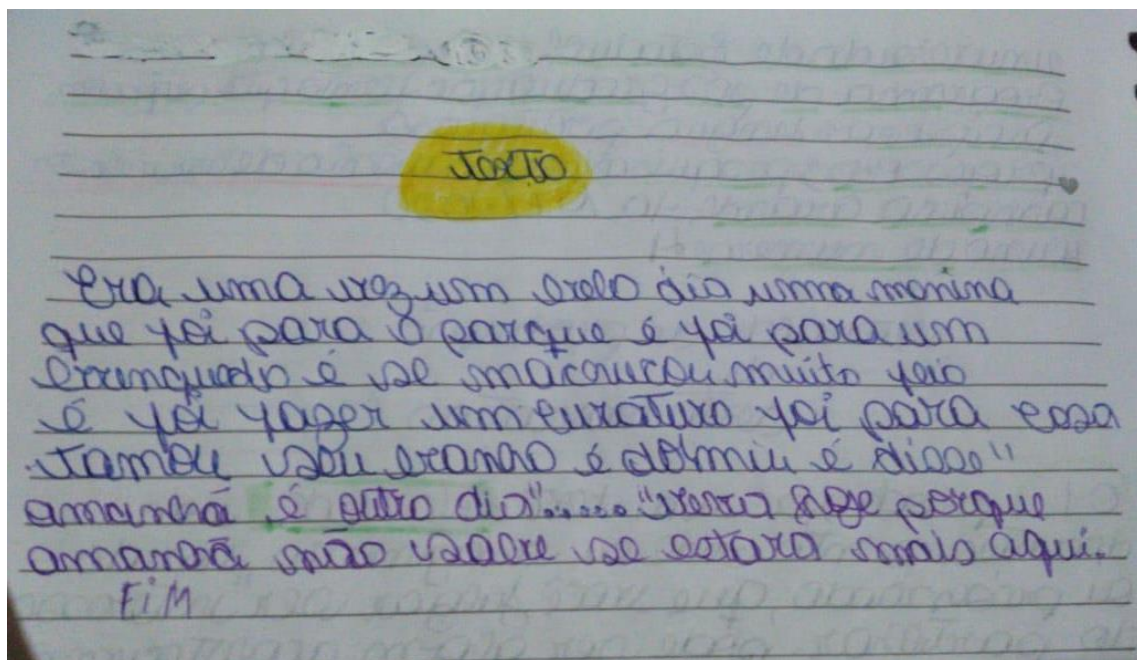 Texto
Era uma vez um belo dia uma menina
que foi para o parque é foi para um
brinquedo é se machucou muito feio
é foi fazer um curativo foi para casa
Tomou seu banho é dormiu é disse"
amanhã é outro dia"..... "viva hoje porque
amanhã não sabe se estara mais aqui.
FiM